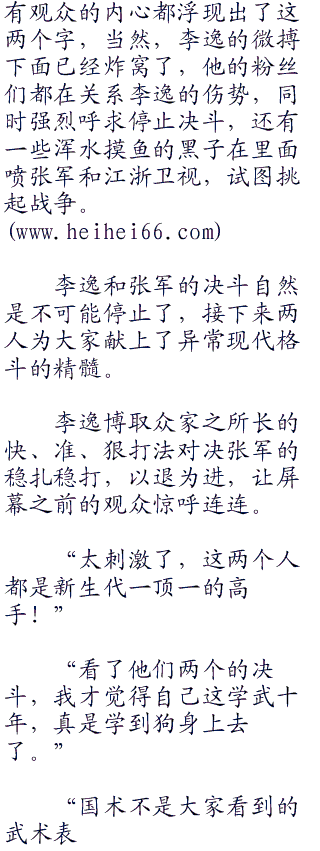 有观众的内心都浮现出了这
两个字，当然，李逸的微搏
下面已经炸窝了，他的粉丝
们都在关系李逸的伤势，同
时强烈呼求停止决斗，还有
一些浑水摸鱼的黑子在里面
喷张军和江浙卫视，试图挑
起战争。
(www.heihei66.com)
李逸和张军的决斗自然
是不可能停止了，接下来两
人为大家献上了异常现代格
斗的精髓。
李逸博取众家之所长的
快、准、狠打法对决张军的
稳扎稳打，以退为进，让屏
幕之前的观众惊呼连连。
“太刺激了，这两个人
都是新生代一顶一的高
手！”
“看了他们两个的决
斗，我才觉得自己这学武十
年，真是学到狗身上去
了。”
“国术不是大家看到的
武术表